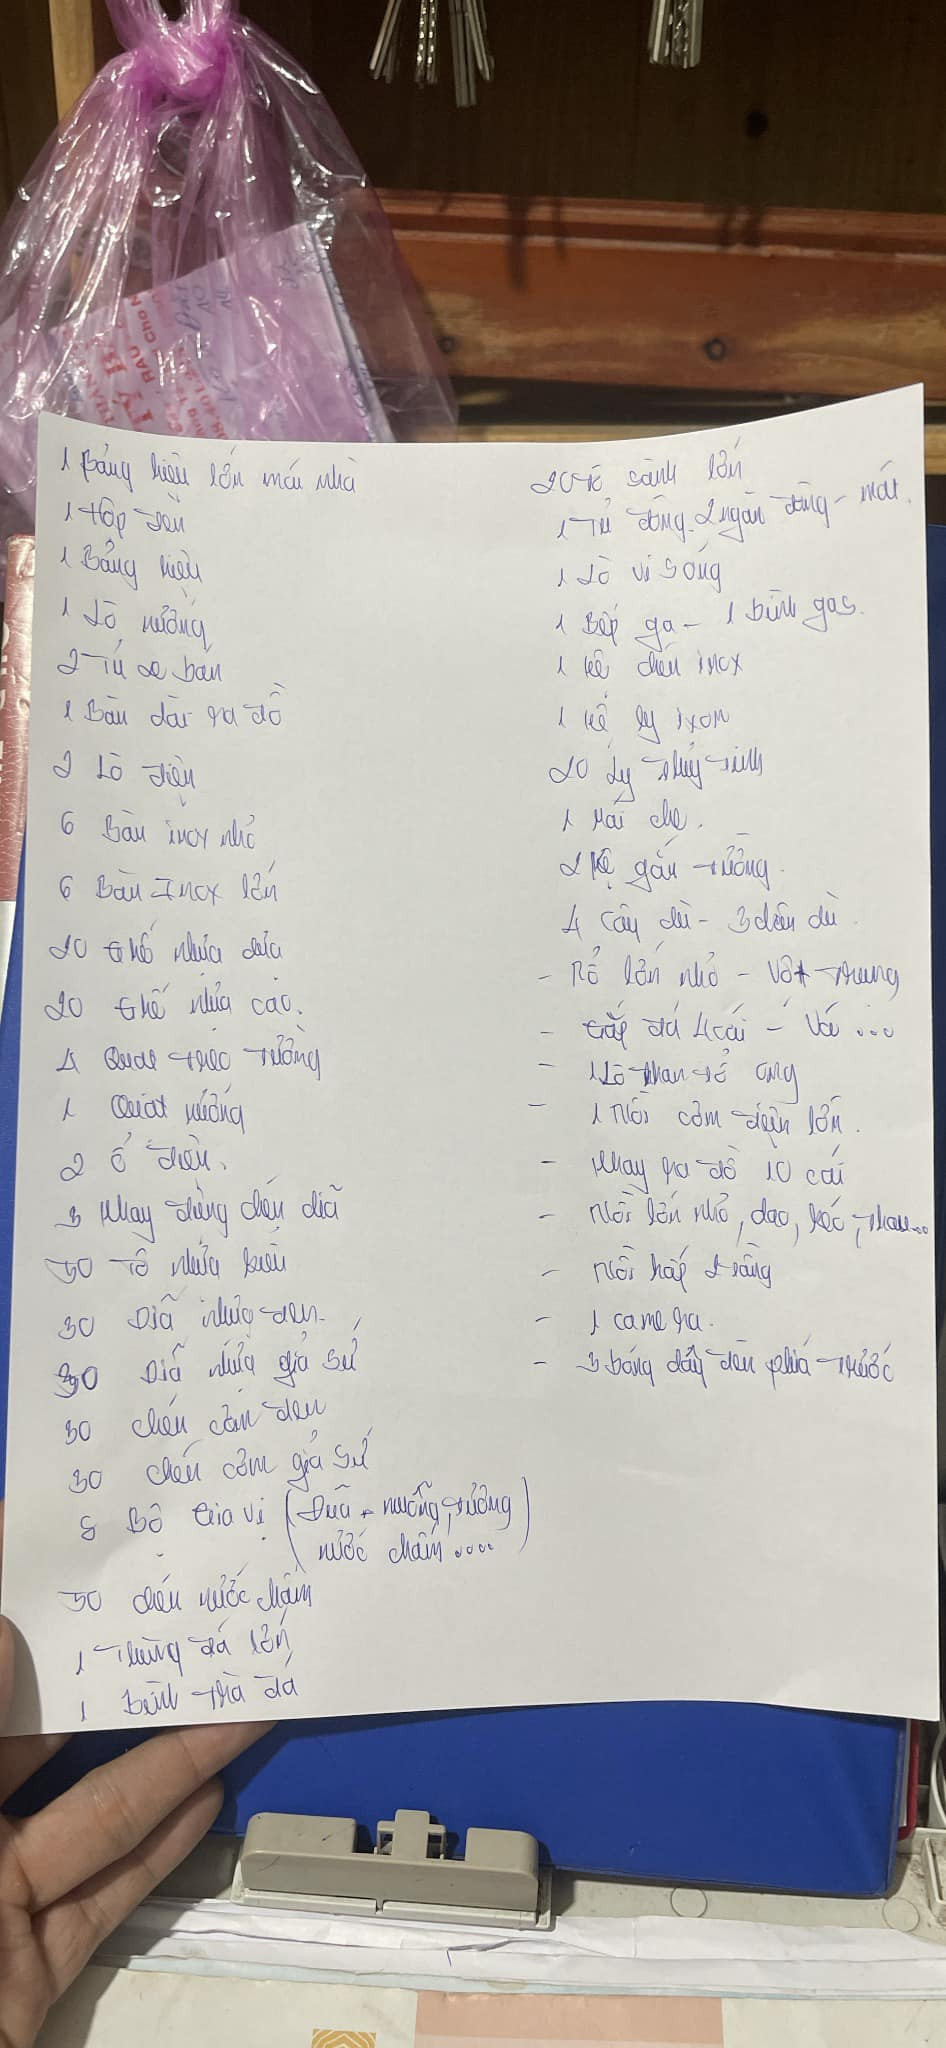 1 Bảng hiệu lớn mái nhà
1 Hộp đèn
1 Bảng hiệu
1 Lò nướng
2 Tủ xe bán
1 Bàn dài ra đồ
2 Lò điện
6 Bàn inox nhỏ
6 Bàn Inox lớn
20 Ghế nhựa dựa
20 Ghế nhựa cao.
4 Quạt treo tường
1 Quạt nướng
2 ổ điện.
3 khay đựng chén dĩa
50 Tô nhựa kiểu
30 Dĩa nhựa đen.
30 Dĩa nhựa giả sứ
30 chén cơm đen
30 chén cơm giả sứ
8 Bộ Gia vị (Đũa + muỗng, tương
nước chấm ....)
50 chén nước chấm
1 Thùng đá lớn
1 Bình trà đá
20 Tô sành lớn
1 Tủ đông 2 ngăn đông - mát.
1 Lò vi sóng
1 Bếp ga - 1 bình gas.
1 kệ chén inox
1 kệ ly ixon
20 Ly thủy tinh
1 Mái che.
2 Kệ gắn tường.
4 cây dù - 3 chân dù.
- Rổ lớn nhỏ - Vớt trung
- Gắp đá 4 cái - Vá ...
- 1 Lò than tổ ong
- 1 Nồi cơm điện lớn.
- khay ra đồ 10 cái
- Nồi lớn nhỏ, dao, kéo, thau...
- Nồi hấp 2 tầng
- 1 camera.
- 3 bóng dây đèn phía trước
TỶ B
BAU